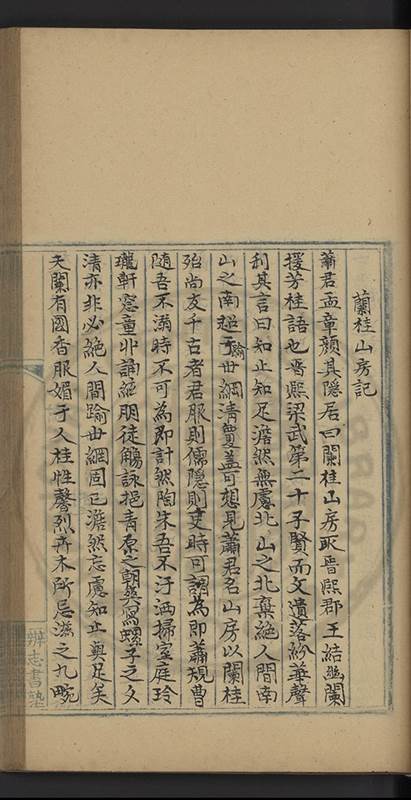 蘭桂山房記
蕭君孟章顏其隱居曰蘭桂山房取晉熙郡王結幽蘭
援芳桂語也晉熙梁武第二十子賢而文遺落紛華聲
利其言曰知止知足澹然無慮北山之北棄絕人間南
山之南超踰世網清夐蓋可想見蕭君名山房以蘭桂
殆尚友千古者君服則儒隱則吏時可謂為即蕭規曹
隨吾不溺時不可為即計然陶朱吾不汙洒掃室庭玲
瓏軒窓童丱誦絕朋徒觴詠挹青原之朝爽寫螺子之夕
清亦非必絕人間踰世網固已澹然忘慮知止與足矣
夫蘭有國香服媚于人桂性馨烈卉木所忌滋之九畹
辨志書塾